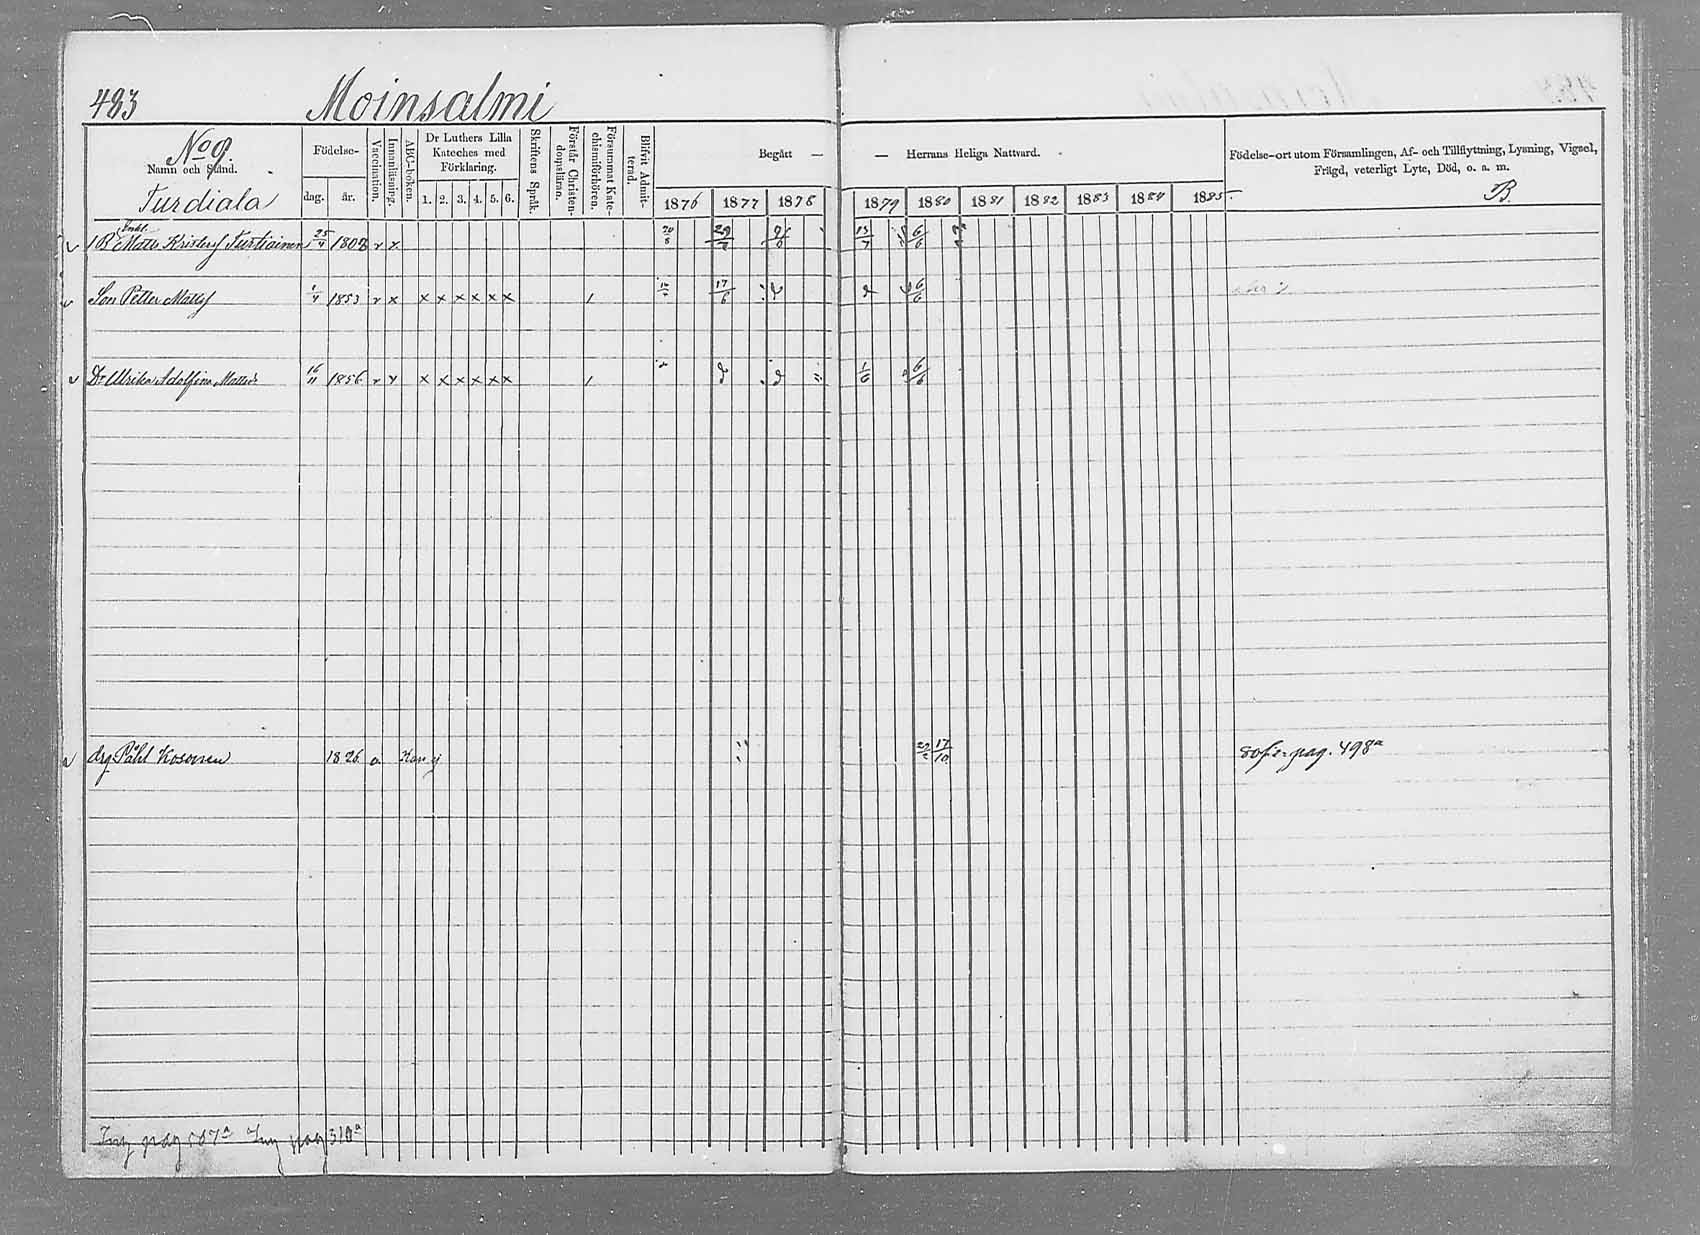 483 Moinsalmi
No 9.
Namn och Stånd.
Turdiala
Födelse-
dag. år.
Vaccination.
Innanläsning.
ABC-boken.
Dr Luthers Lilla
Kateches med
Förklaring.
1. 2. 3. 4. 5. 6.
Skriftens Språk.
Förstår Christen-
domsläran.
Försummat Kate-
chismiförhören.
Blifvit Admit-
terad.
Begått —
— Herrans Heliga Nattvard.
1876 1877 1878
1879 1880 1881 1882 1883 1884 1885
Födelse-ort utom Församlingen, Af- och Tillflyttning, Lysning, Vigsel,
Frägd, veterligt Lyte, Död, o. a. m.
B.
Enkl.
B Matts Kristerss Turtiainen 25/4 1808 v x 29/2 6/6
Son Petter Mattss 1/4 1853 v x x x x x x x 1 17/6 6/6
Dr Ulrika Adolfina Mattsdr 16/11 1856 v v x x x x x x 1 1/6 6/6
drg Påhl Kosonen 1826 Kan ej 17/10 pag. 498a
Inh pag 507a Inh pag 510a